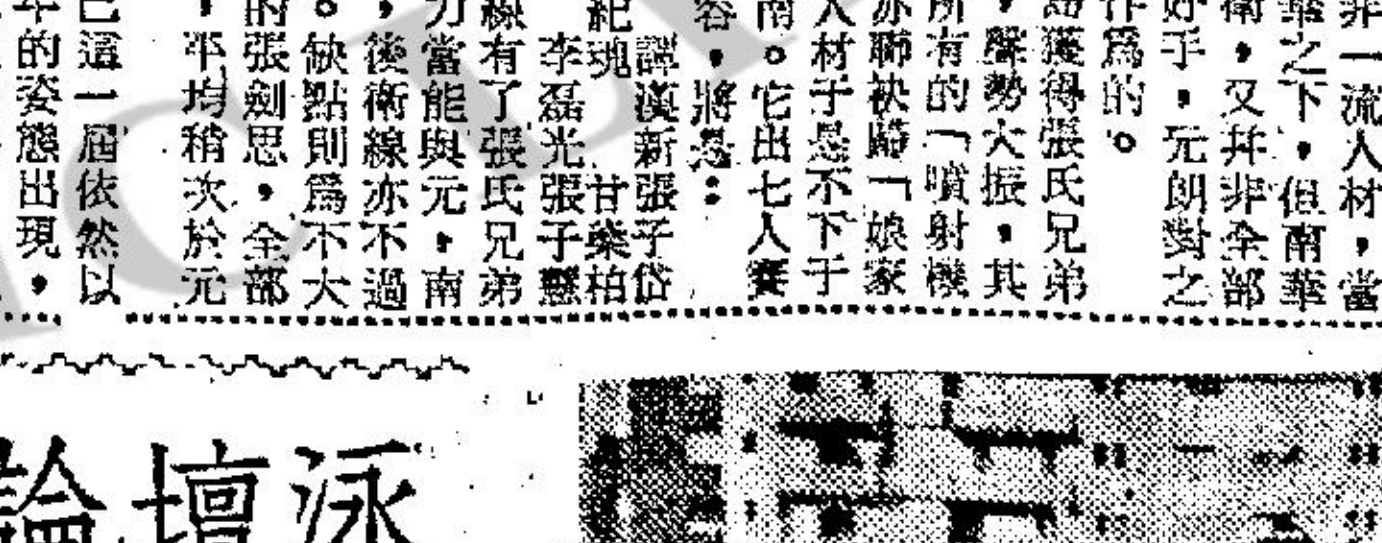 非一流人材，當
華之下，但南華
衛，又幷非全部
好手，元朗對之
作爲的。
獲得張氏兄弟
，聲勢大振，其
所有的「噴射機
亦聯袂歸「娘家
人材于是不下于
南。它出七人賽
容，將是：
譚漢新張子岱
紀瑰 甘燊柏
李磊光張子慧
線有了張氏兄弟
力當能與元，南
，後衛線亦不過
。缺點則爲不大
的張劍思，全部
，平均稍次於元
已這一屆依然以
年的姿態出現，
泳壇論